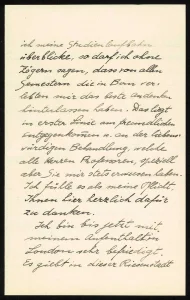 ich meine Studienlaufbahn
überblicke, so darf ich ohne
Zögern sagen, dass von allen
Semestern die in Bonn ver-
lebten mir das beste Andenken
hinterlassen haben. Das liegt
in erster Linie am freundlichen
entgegenkommen u. an der liebens-
würdigen Behandlung, welche
alle Herren Professoren, speziell
aber Sie mir stets erwiesen haben.
Ich fühle es als meine Pflicht,
Ihnen hier herzlich dafür
zu danken.
Ich bin bis jetzt mit
meinem Aufenthalt in
London sehr befriedigt.
Es giebt in dieser Riesenstadt